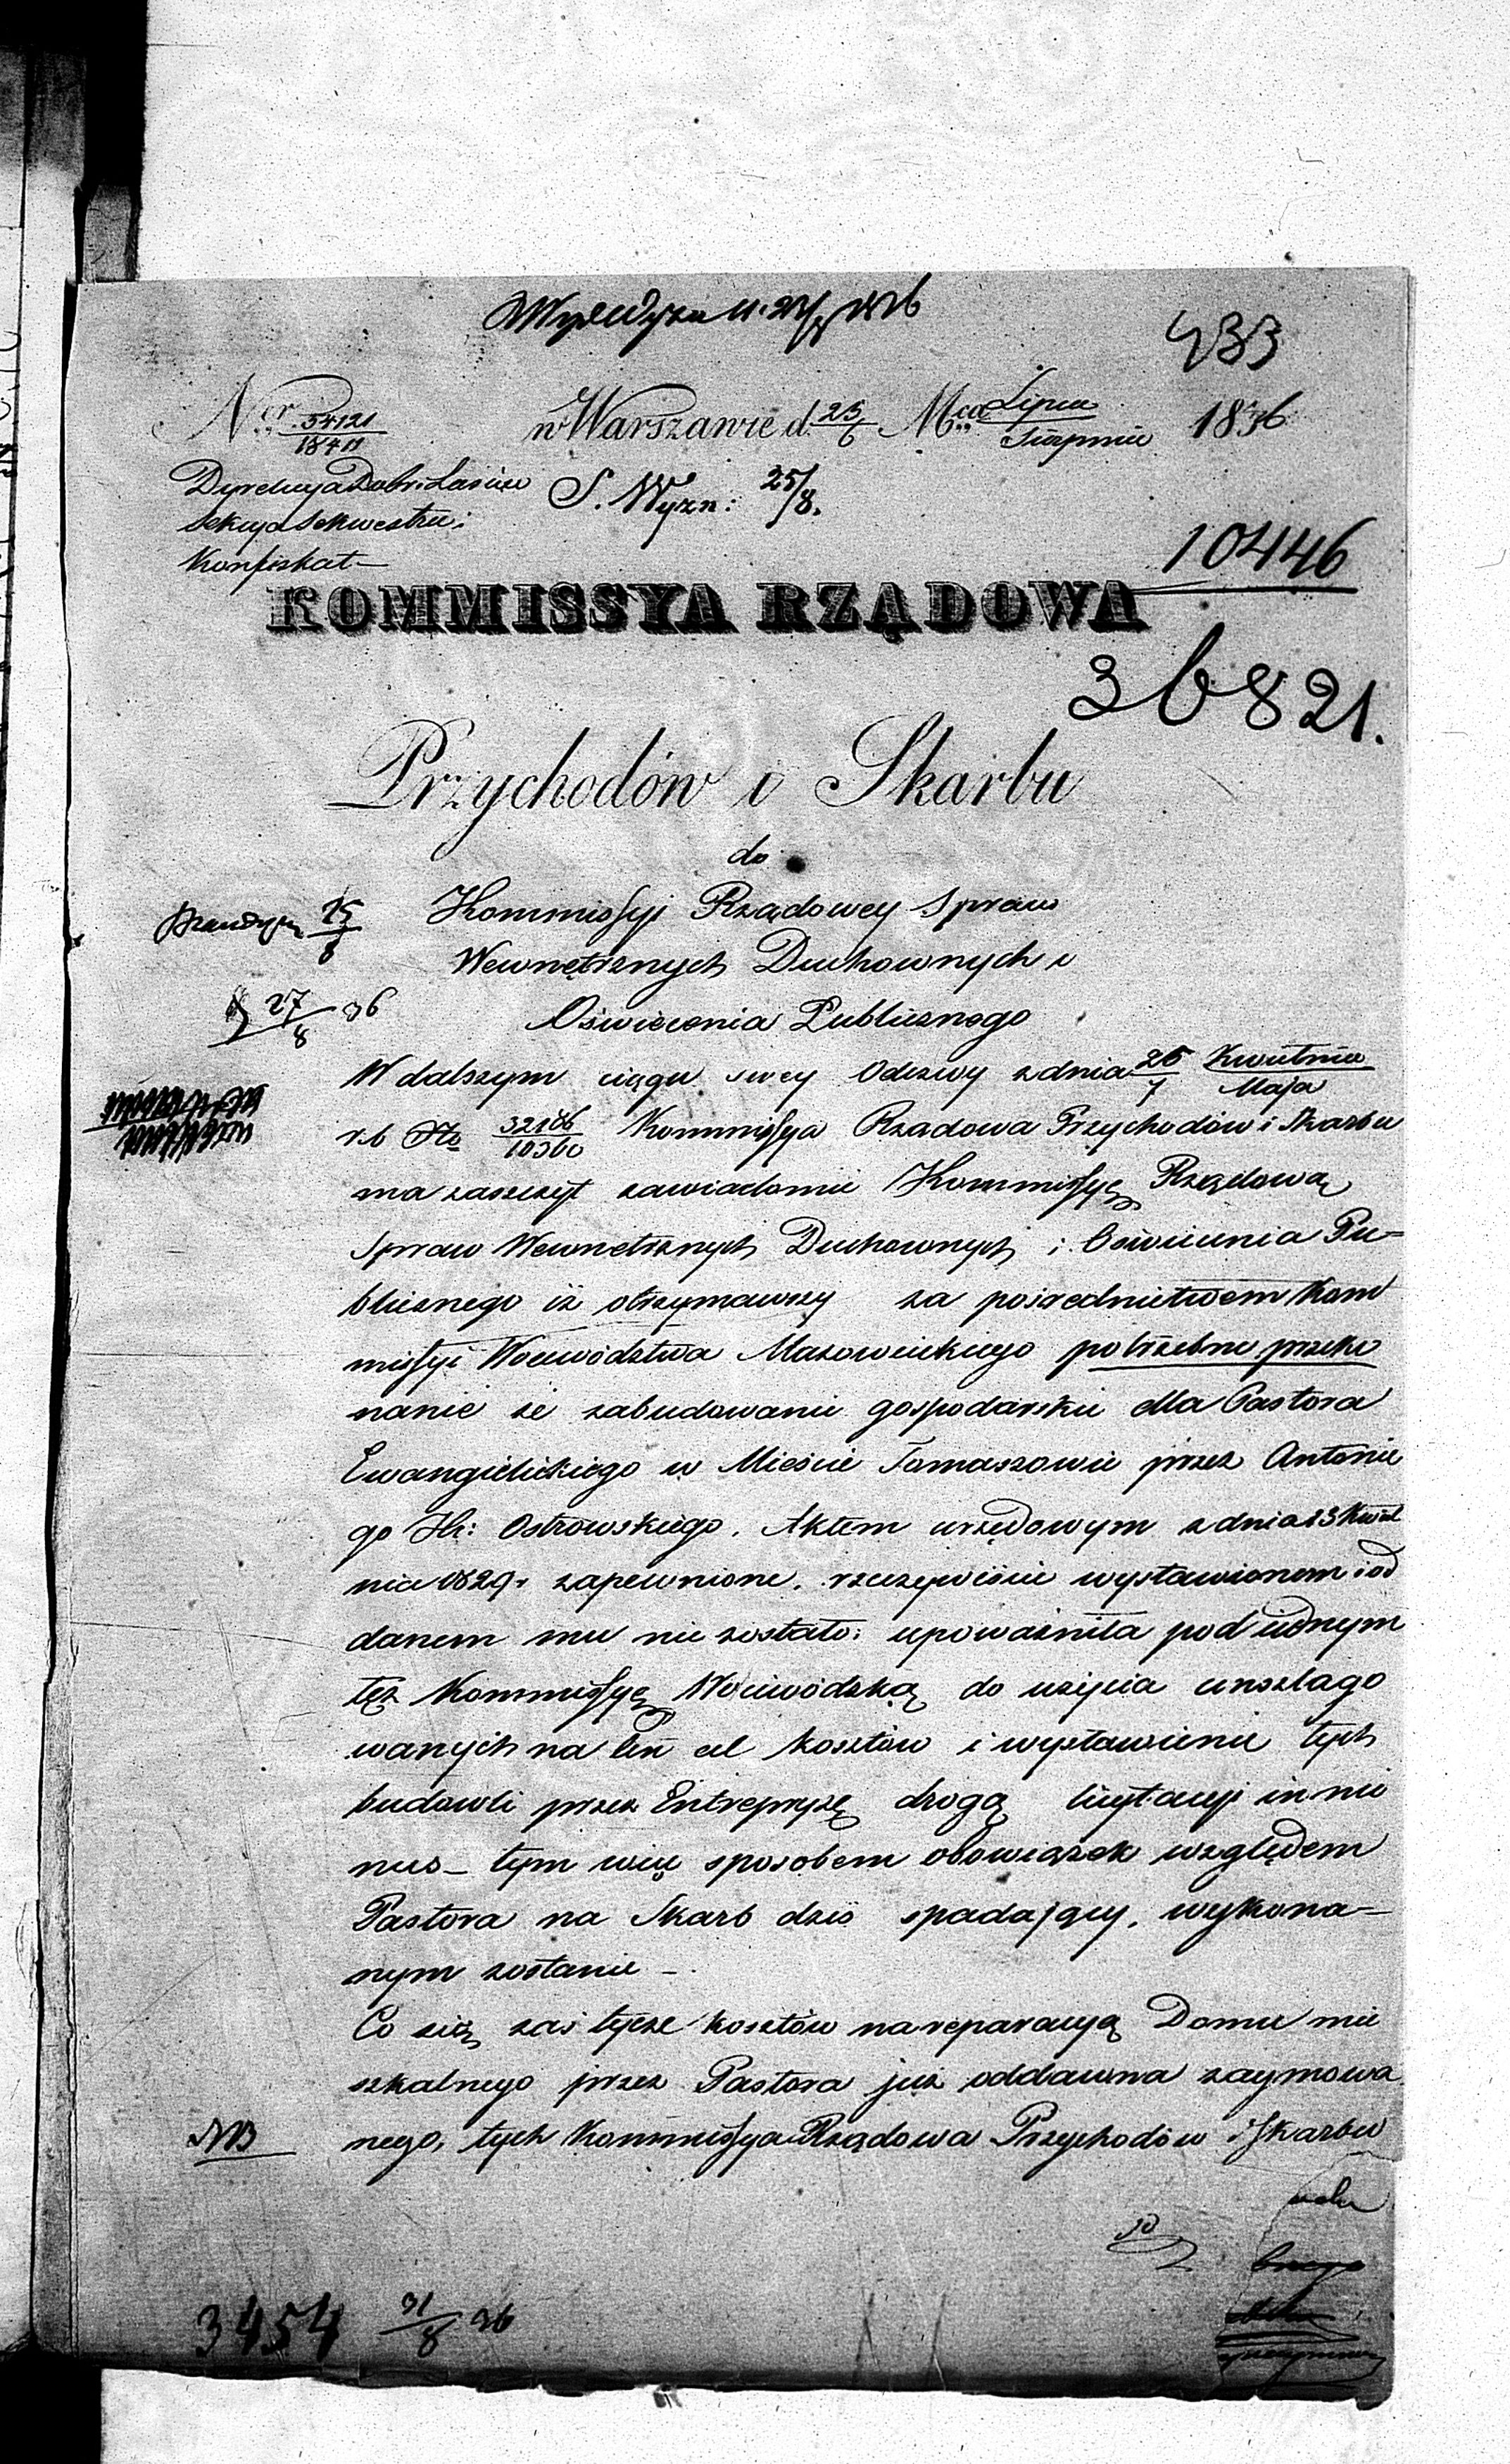 433
Ner 54121/18411 w Warszawie d. 25/6 Mca Lipca/Sierpnia 1836
Dyrekcya Dobr i Lasów S. Wyzn: 25/8.
Sekcya Sekwestru i
Konfiskat
10446
KOMMISSYA RZĄDOWA
36821.
Przychodów i Skarbu
do
25/8 Kommissyi Rządowey Spraw
Wewnętrznych Duchownych i
27/8 36 Oświecenia Publicznego
W dalszym ciągu swey Odezwy z dnia 25/7 Kwietnia/Maja
r.b No 32186/10360 Kommissya Rządowa Przychodów i Skarbu
ma zaszczyt zawiadomić Kommissyę Rządową
Spraw Wewnętrznych Duchownych i Oświecenia Pu-
blicznego iż otrzymawszy za pośrednictwem Kom
missyi Woiewództwa Mazowieckiego potrzebne przeko
nanie że zabudowanie gospodarskie dla Pastora
Ewangielickiego w Mieście Tomaszowie przez Antonie
go Hr: Ostrowskiego. Aktem urzędowym z dnia 23 Kwiet
nia 1829 r zapewnione. rzeczywiście wystawionem i od
danem mu nie zostało: upoważniła pod iednym
też Kommissyę Woiewódzką do użycia anszlago
wanych na ten cel kosztów i wystawienie tych
budowli przez Entrepryzę drogą licytacyi in mi
nus – tym więc sposobem obowiązek względem
Pastora na Skarb dziś spadaiący, wykona–
nym zostanie –
Co się zaś tycze kosztów na reparacyą Domu mie
szkalnego przez Pastora już oddawna zaymowa
NB nego, tych Kommissya Rządowa Przychodów i Skarbu
3454 31/8 36